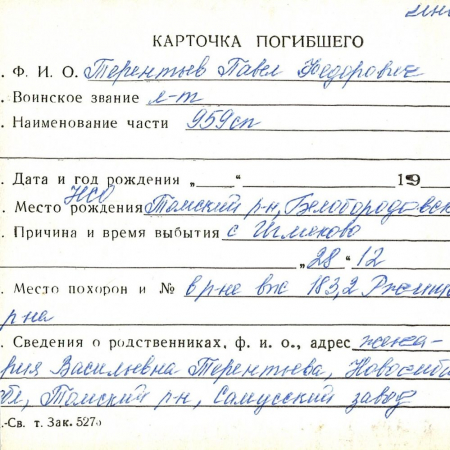 КАРТОЧКА ПОГИБШЕГО
. Ф. И. О. Терентьев Павел Федорович
. Воинское звание л-т
. Наименование части 959сп
. Дата и год рождения „ “ 19
НСО
. Место рождения Томский р-н, Белобородовск
. Причина и время выбытия с
„28“ 12
. Место похорон и № в р-не выс 183,2
р-на
. Сведения о родственниках, ф. и. о., адрес жена-
рия Васильевна Терентьева, Новосиби
бл, Томский р-н, Самусский завод
.-Св. т. Зак. 527